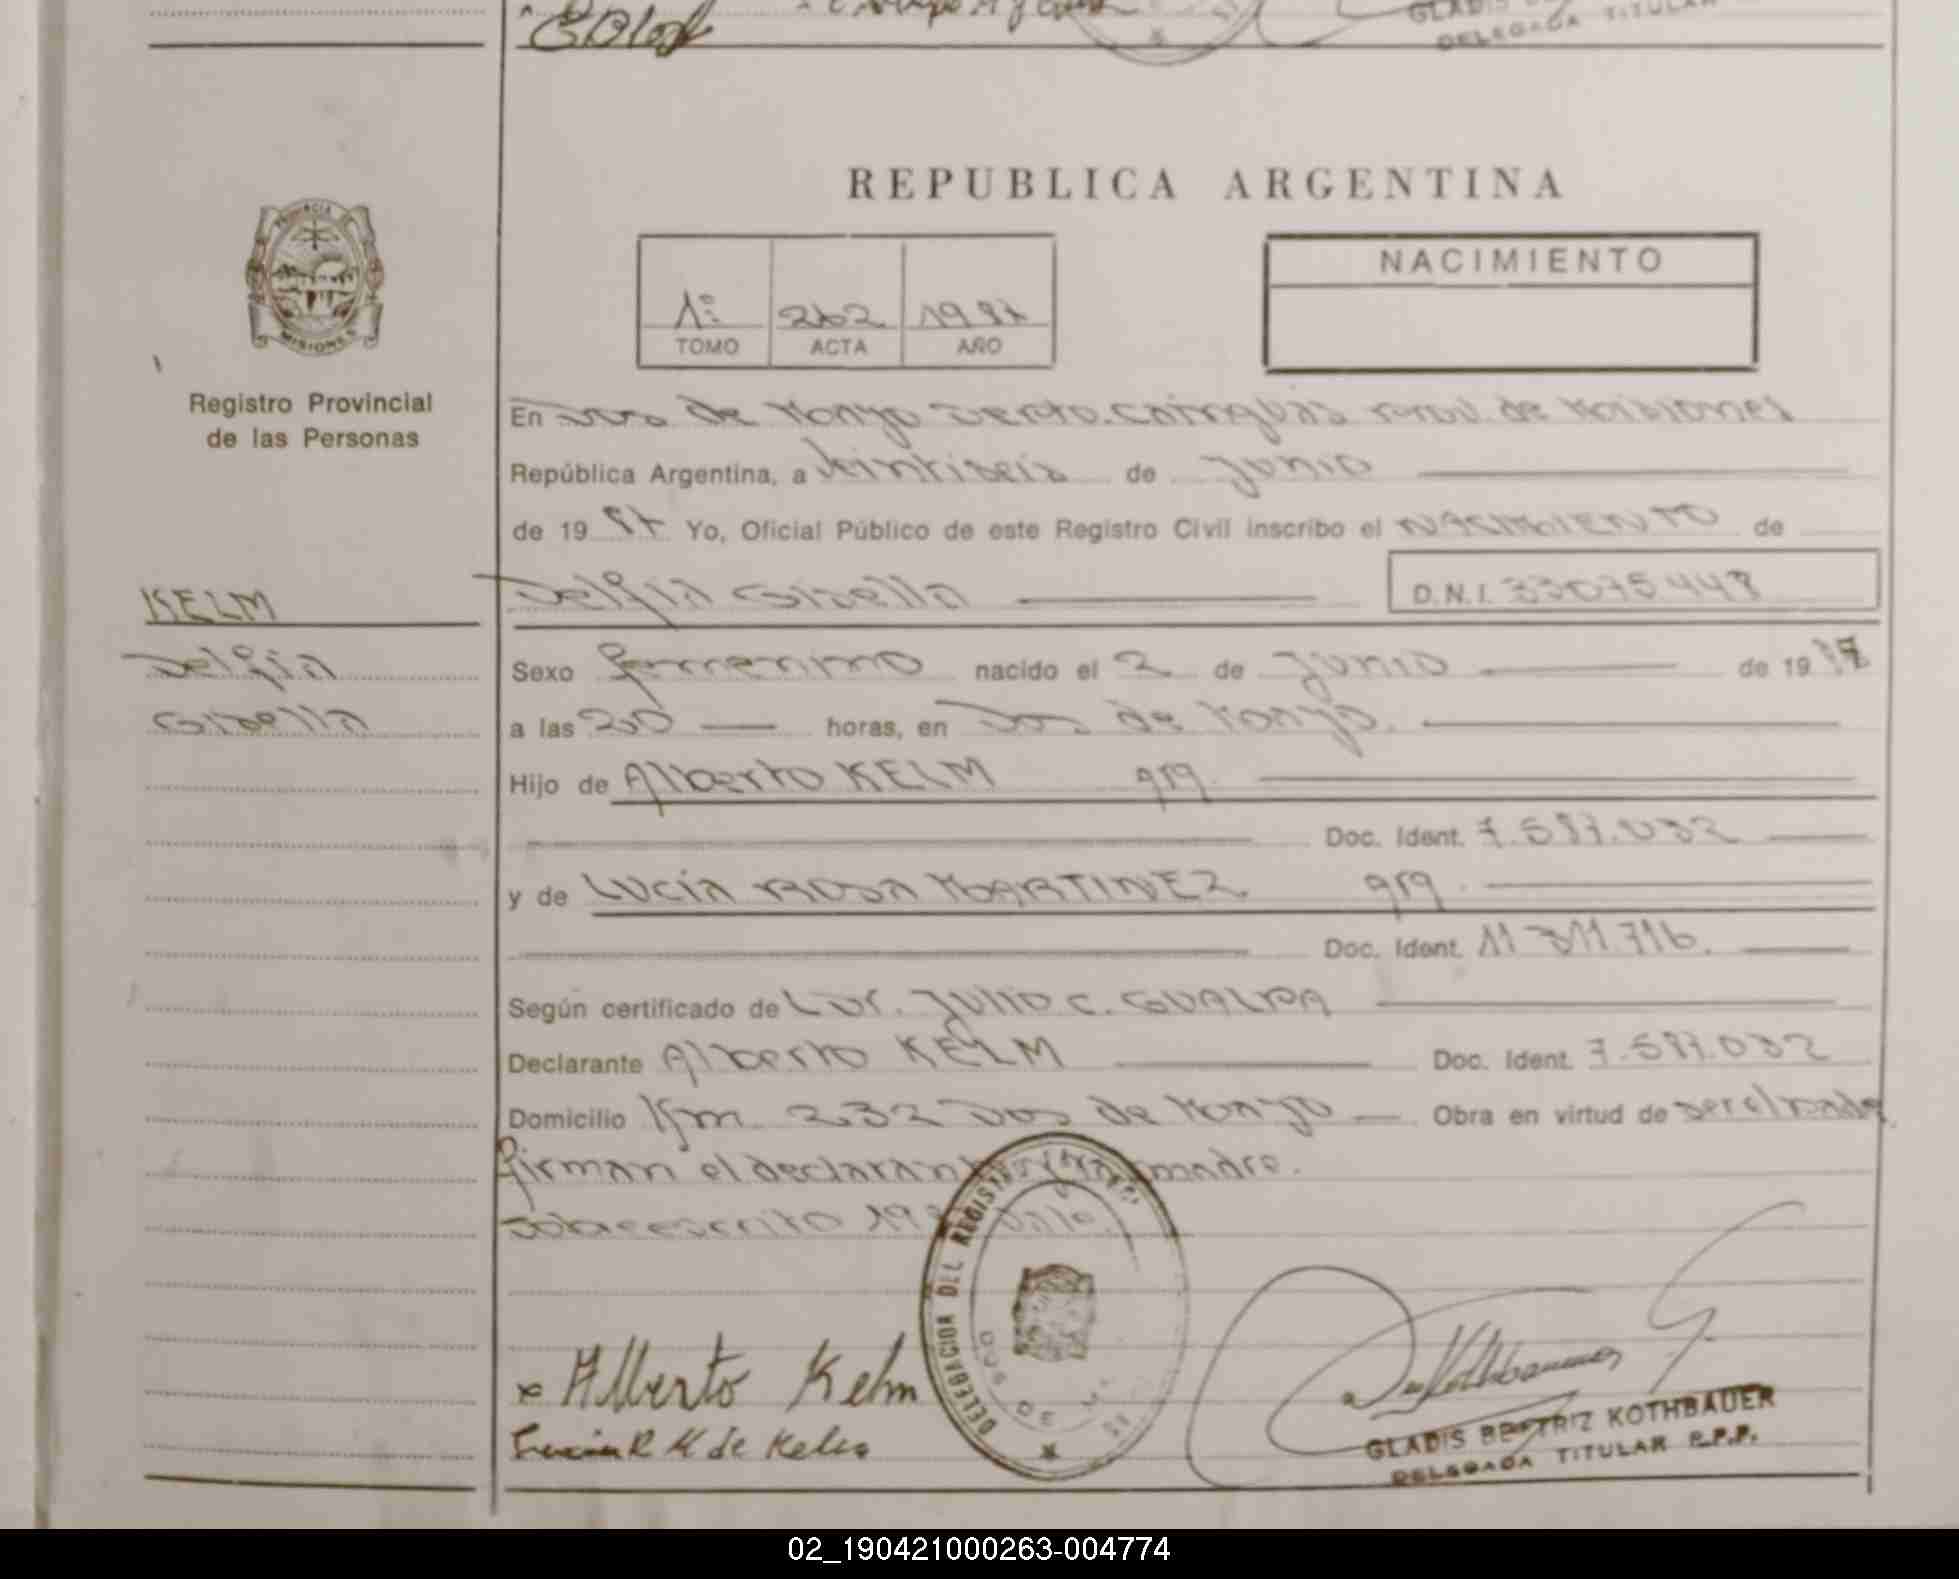 GLADIS
DELEGADA TITULAR
PROVINCIA
MISIONES
Registro Provincial
de las Personas
KELM
Delfia
Gisella
REPUBLICA ARGENTINA
1º 262 1987
TOMO ACTA AÑO
NACIMIENTO
En Dos de Mayo Depto. Cainguas Prov. de Misiones
República Argentina, a veintiseis de Junio
de 19 87 Yo, Oficial Público de este Registro Civil inscribo el NACIMIENTO de
Delfia Gisella D.N.I. 33075448
Sexo femenino nacido el 2 de Junio de 19 87
a las 20 horas, en Dos de Mayo.
Hijo de Alberto KELM arg.
Doc. Ident. 7.587.032
y de Lucía Rosa MARTINEZ arg.
Doc. Ident. 11 311.716.
Según certificado de Dr. Julio C. GUALPA
Declarante Alberto KELM Doc. Ident. 7.587.032
Domicilio Km. 232 Dos de Mayo Obra en virtud de ser el padre
firman el declarante y la madre.
Sobreescrito 19 Vale.
DELEGACION DEL REGISTRO
DOS DE
x Alberto Kelm
Lucia R M de Kelm
Kothbauer
GLADIS BEATRIZ KOTHBAUER
DELEGADA TITULAR R.P.P.
02_190421000263-004774